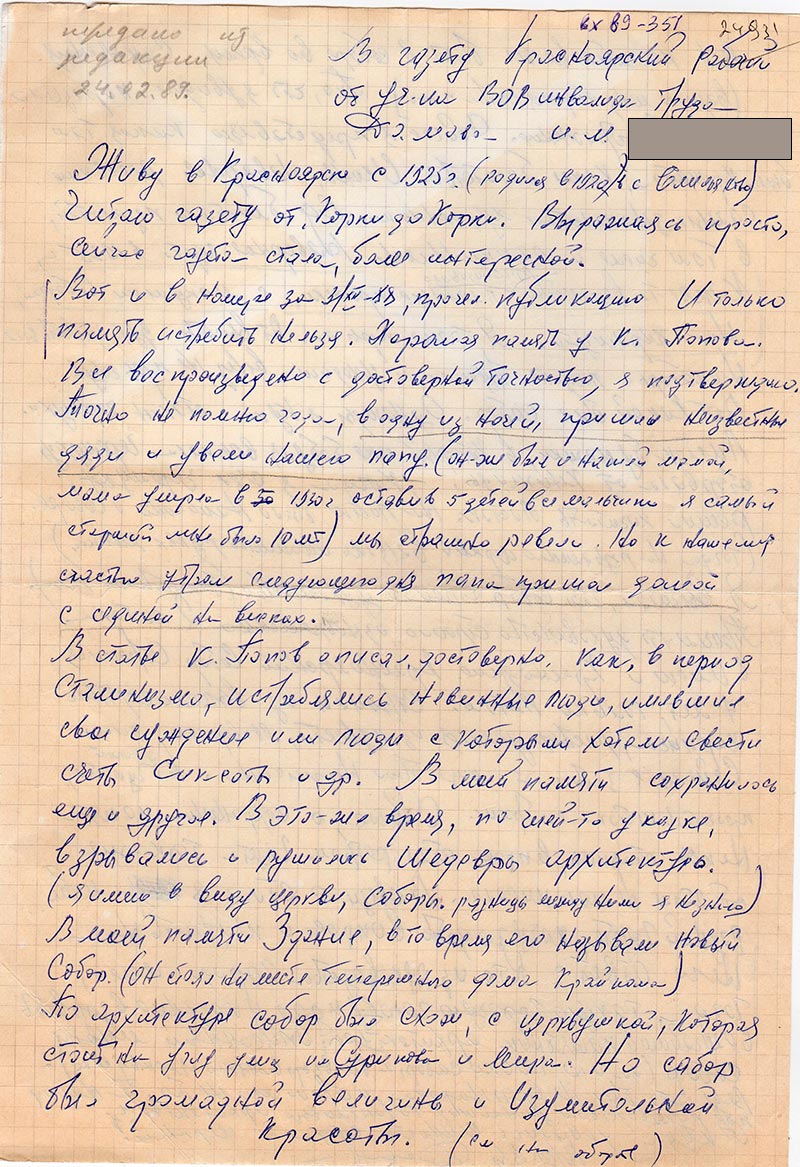 вх 89-351
передано из
редакции
24.02.89.
В газету Красноярский рабочий
от уч-ка ВОВ инвалида труда
И.М.
Живу в Красноярске с 1925г. (родился в с
Читаю газету от, Корки до Корки. Выражаясь просто,
сейчас газета стала, более интересной.
Вот и в номере за 31/XII-88, прочел публикацию И только
память истребить нельзя. Хорошая память у К. Попова.
Все воспроизведено с достоверной точностью, я подтверждаю.
Точно не помню года, в одну из ночей, пришли неизвестные
дяди и увели нашего папу. (он-же был и нашей мамой,
мама умерла в 1930г оставив 5 детей все мальчики я самый
старший мне было 10 лет) мы страшно ревели. Но к нашему
счастью утром следующего дня папа пришол домой
с сединой на висках.
В статье К. Попов, описал, достоверно. Как, в период
Сталинизма, истреблялись невинные люди, имевшие
свое суждение или люди с которыми хотели свести
счеты Сиксоты и др. В моей памяти сохранилось
еще и другое. В это-же время, по чьей-то указке,
взрывались и рушились Шедевры архитектуры.
(я имею в виду церкви, Соборы. разницы между ними я незнаю)
В моей памяти Здание, в то время его называли новый
Собор. (он стоял на месте теперешнего дома Крайкома)
По архитектуре собор был схож, с церквушкой, которая
стоит на углу улиц им Сурикова и Мира. Но сабор
был громадной величины и Изумительной
Красоты. (см на обороте)